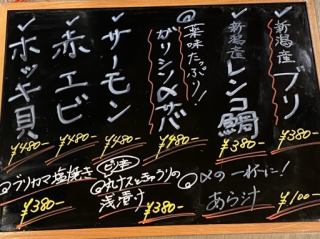 ✓新潟産 ブリ
¥380-
✓新潟産 レンコ鯛
¥380-
@薬味たっぷり!
ガリシメサバ
¥980-
✓サーモン
¥480-
✓赤エビ
¥480-
✓ホッキ貝
¥480-
@〆の一杯に!
あら汁
¥100-
@丸ナスときゅうりの
浅漬け
¥380-
@ブリカマ塩焼き
¥380-